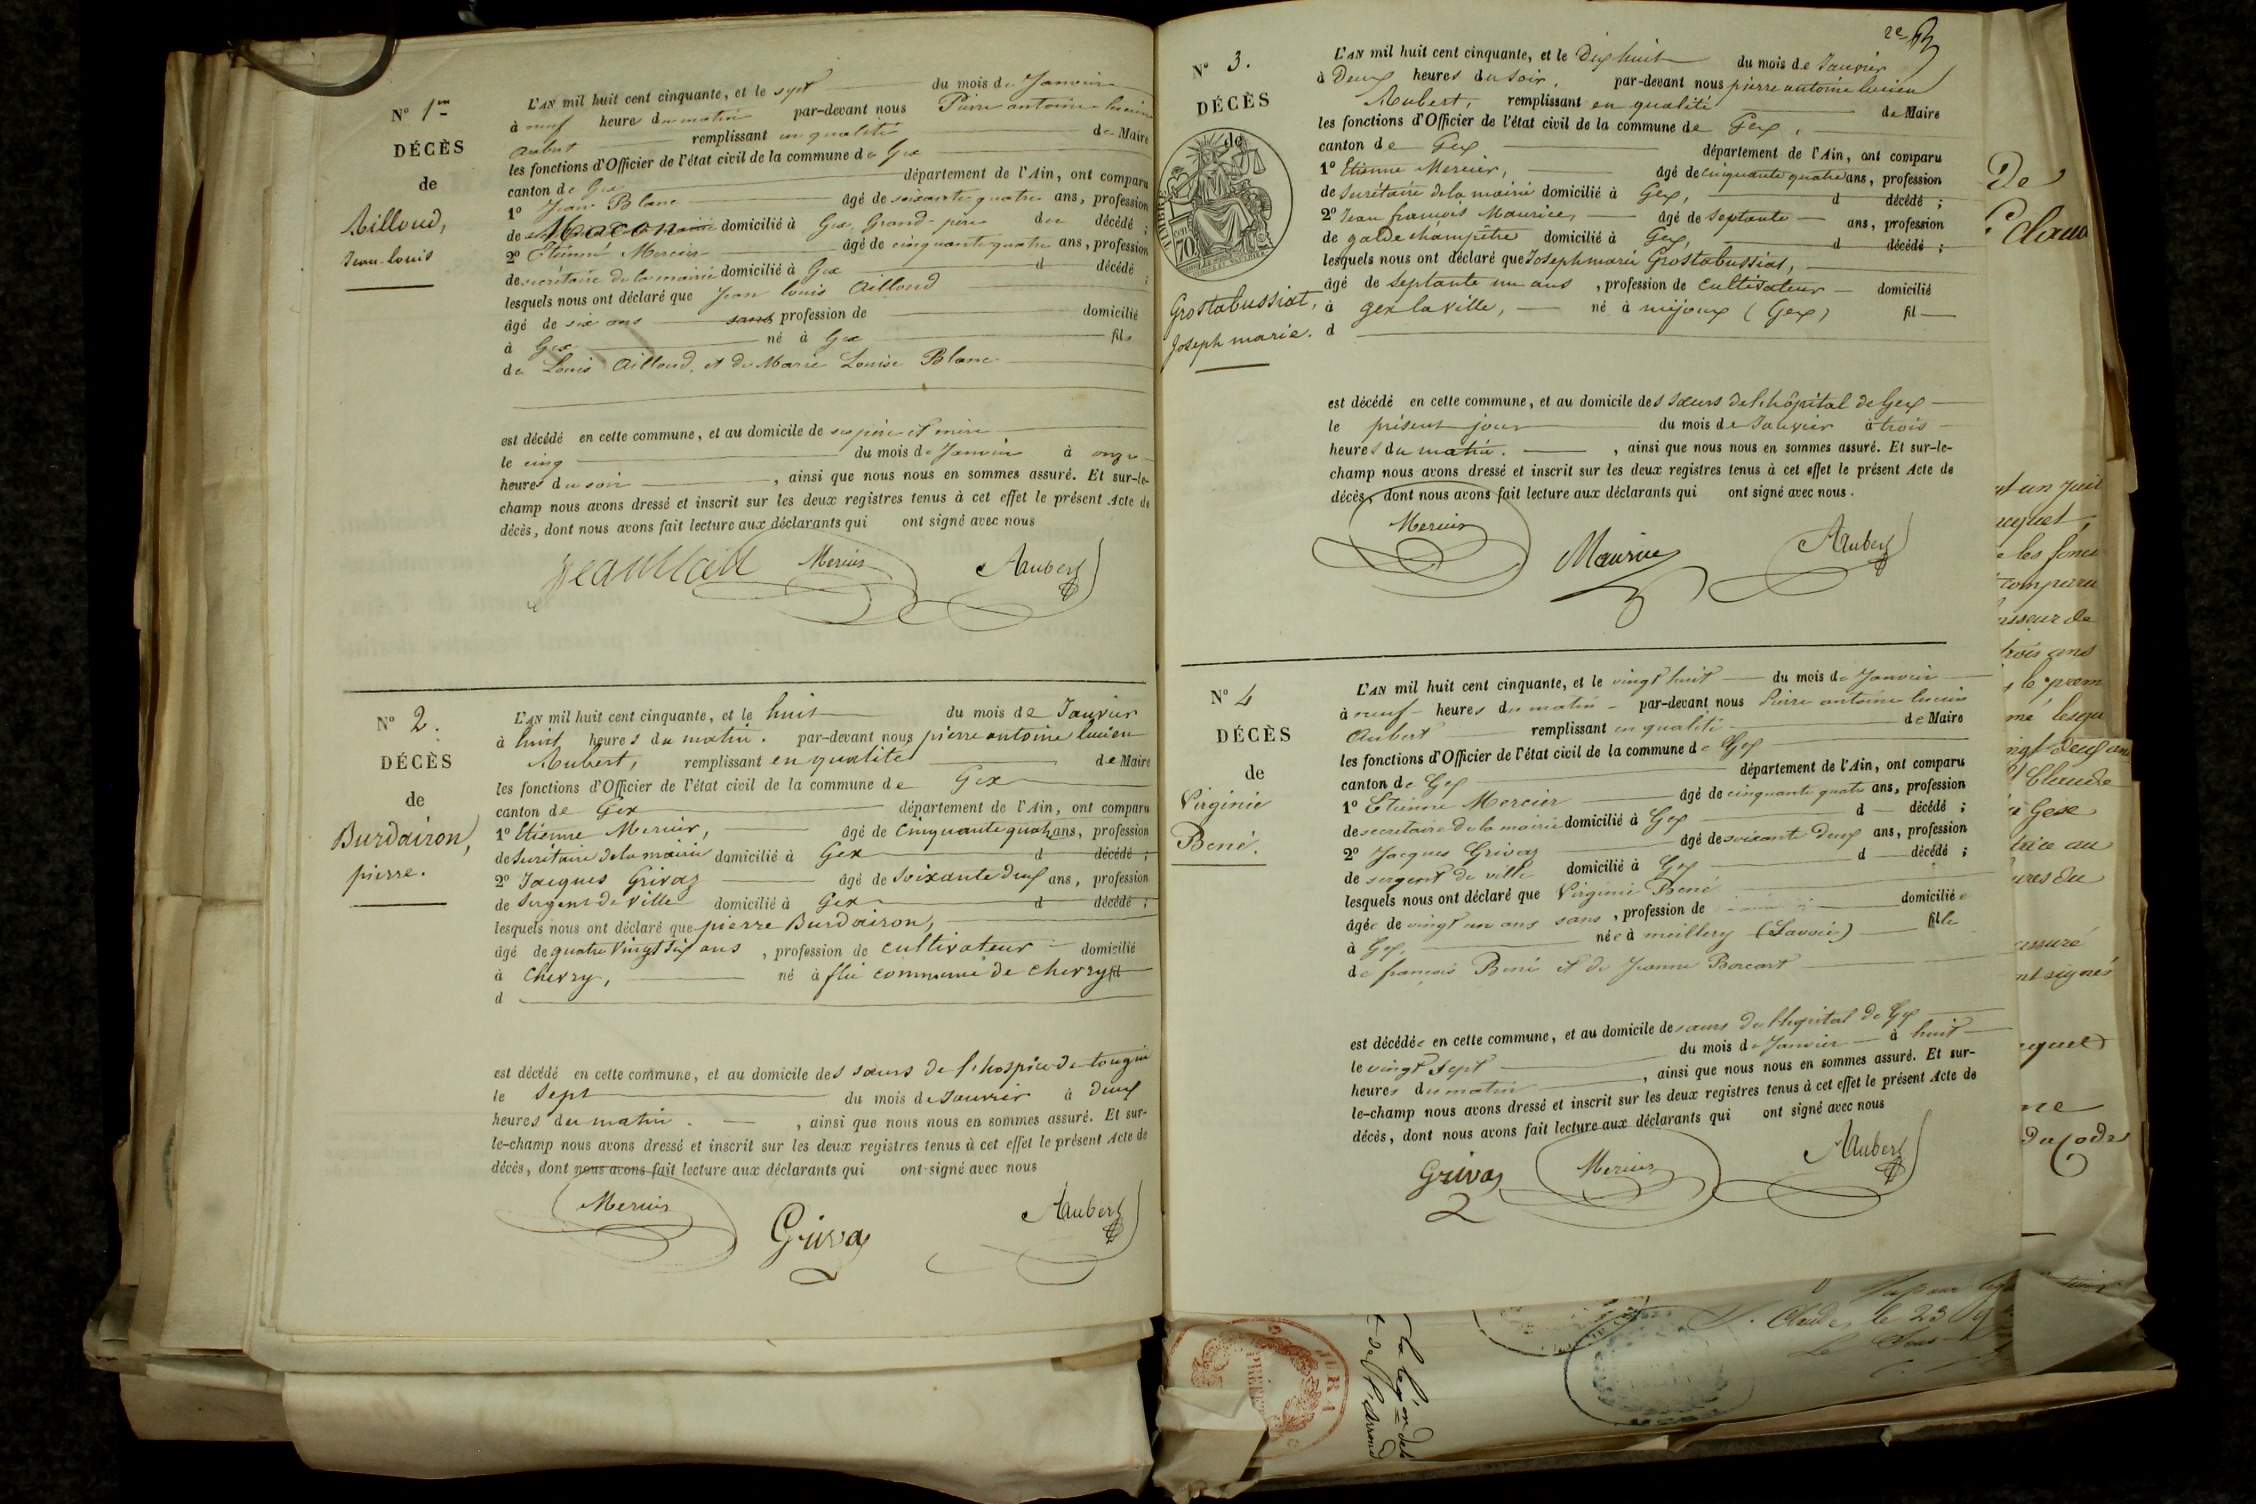 N° 1er
DÉCÈS
de
Ailloud,
Jean-louis
L'AN mil huit cent cinquante, et le sept du mois de Janvier
à neuf heures du matin par-devant nous Pierre antoine lucien
Aubert remplissant en qualité de Maire
les fonctions d'Officier de l'état civil de la commune de Gex
canton de Gex département de l'Ain, ont comparu
1° Jean Blanc âgé de soixante quatre ans, profession
de Macon domicilié à Gex, Grand-père du décédé;
2° Etienne Mercier âgé de cinquante quatre ans, profession
de secrétaire de la mairie domicilié à Gex d décédé;
lesquels nous ont déclaré que Jean louis Ailloud
âgé de six ans sans profession de domicilié
à Gex né à Gex fils
de Louis Ailloud, et de Marie Louise Blanc
est décédé en cette commune, et au domicile de ses père et mère
le cinq du mois de Janvier à onze
heures du soir, ainsi que nous nous en sommes assuré. Et sur-le-
champ nous avons dressé et inscrit sur les deux registres tenus à cet effet le présent Acte de
décès, dont nous avons fait lecture aux déclarants qui ont signé avec nous
Mercier Aubert
N° 2.
DÉCÈS
de
Burdairon,
pierre.
L'AN mil huit cent cinquante, et le huit du mois de Janvier
à huit heures du matin. par-devant nous pierre antoine lucien
Aubert, remplissant en qualité de Maire
les fonctions d'Officier de l'état civil de la commune de Gex
canton de Gex département de l'Ain, ont comparu
1° Etienne Mercier, âgé de Cinquante quatre ans, profession
de Secrétaire de la mairie domicilié à Gex d décédé;
2° Jacques Grivaz âgé de Soixante deux ans, profession
de Sergent de ville domicilié à Gex d décédé;
lesquels nous ont déclaré que pierre Burdairon,
âgé de quatre vingt six ans, profession de cultivateur domicilié
à Chevry, né à flié commune de chevry fil
d
est décédé en cette commune, et au domicile des sœurs de l'hospice de tougin
le Sept du mois de Janvier à deux
heures du matin., ainsi que nous nous en sommes assuré. Et sur-
le-champ nous avons dressé et inscrit sur les deux registres tenus à cet effet le présent Acte de
décès, dont nous avons fait lecture aux déclarants qui ont signé avec nous
Mercier Grivaz Aubert
N° 3.
DÉCÈS
de
Grostabussiat,
Joseph marie.
L'AN mil huit cent cinquante, et le Dix huit du mois de Janvier
à Deux heures du soir, par-devant nous pierre antoine lucien
Aubert, remplissant en qualité de Maire
les fonctions d'Officier de l'état civil de la commune de Gex,
canton de Gex département de l'Ain, ont comparu
1° Etienne Mercier, âgé de cinquante quatre ans, profession
de Secrétaire de la mairie domicilié à Gex, d décédé;
2° Jean françois Maurice, âgé de septante ans, profession
de garde champêtre domicilié à Gex, d décédé;
lesquels nous ont déclaré que Joseph marie Grostabussiat,
âgé de septante un ans, profession de cultivateur domicilié
à gex la ville, né à mijoux (Gex) fil
d
est décédé en cette commune, et au domicile des sœurs de l'hôpital de Gex
le présent jour du mois de Janvier à trois
heures du matin., ainsi que nous nous en sommes assuré. Et sur-le-
champ nous avons dressé et inscrit sur les deux registres tenus à cet effet le présent Acte de
décès, dont nous avons fait lecture aux déclarants qui ont signé avec nous.
Mercier Maurice Aubert
N° 4
DÉCÈS
de
Virginie
Bené.
L'AN mil huit cent cinquante, et le vingt huit du mois de Janvier
à neuf heures du matin par-devant nous Pierre antoine lucien
Aubert remplissant en qualité de Maire
les fonctions d'Officier de l'état civil de la commune de Gex
canton de Gex département de l'Ain, ont comparu
1° Etienne Mercier âgé de cinquante quatre ans, profession
de secrétaire de la mairie domicilié à Gex d décédé;
2° Jacques Grivaz âgé de soixante deux ans, profession
de sergent de ville domicilié à Gex d décédé;
lesquels nous ont déclaré que Virginie Bené
âgée de vingt un ans sans, profession de domiciliée
à Gex, née à meillery (Savoie) fille
de françois Bené et de Jeanne
est décédée en cette commune, et au domicile de sœurs de l'hopital de Gex
le vingt sept du mois de Janvier à huit
heures du matin, ainsi que nous nous en sommes assuré. Et sur-
le-champ nous avons dressé et inscrit sur les deux registres tenus à cet effet le présent Acte de
décès, dont nous avons fait lecture aux déclarants qui ont signé avec nous
Grivaz Mercier Aubert